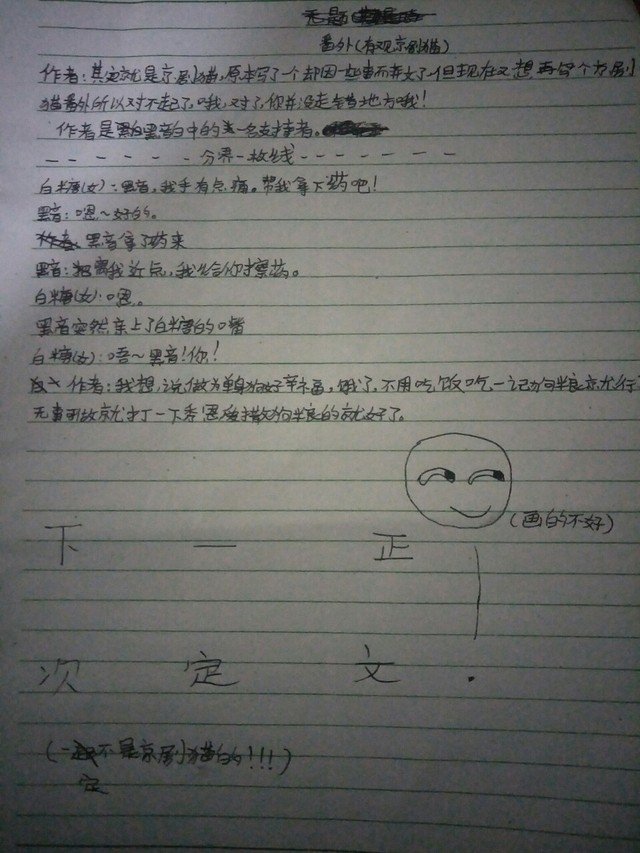 无题
番外(有观京剧猫)
作者:其实就是京剧猫,原本写了一个却因一些事而弃文了但现在又想再写个京剧
猫番外所以对不起了哦,对了,你并没走错地方哦!
作者是黑白中的一名支持者。
------分界一枚线-------
白糖(女):黑音,我手有点痛。帮我拿下药吧!
黑音:嗯~好的。
黑音拿了药来
黑音:把离我近点,我给你擦药。
白糖(女):嗯。
黑音突然亲上了白糖的嘴
白糖(女):唔~黑音!你!
作者:我想,说做为单身狗好幸福,饿了,不用吃饭吃一记狗半良就行了
无事可做就打一下秀恩爱撒狗半良的就好了。
(画的不好)
下一正
次定文.
(一不是京剧猫的!!!)
定